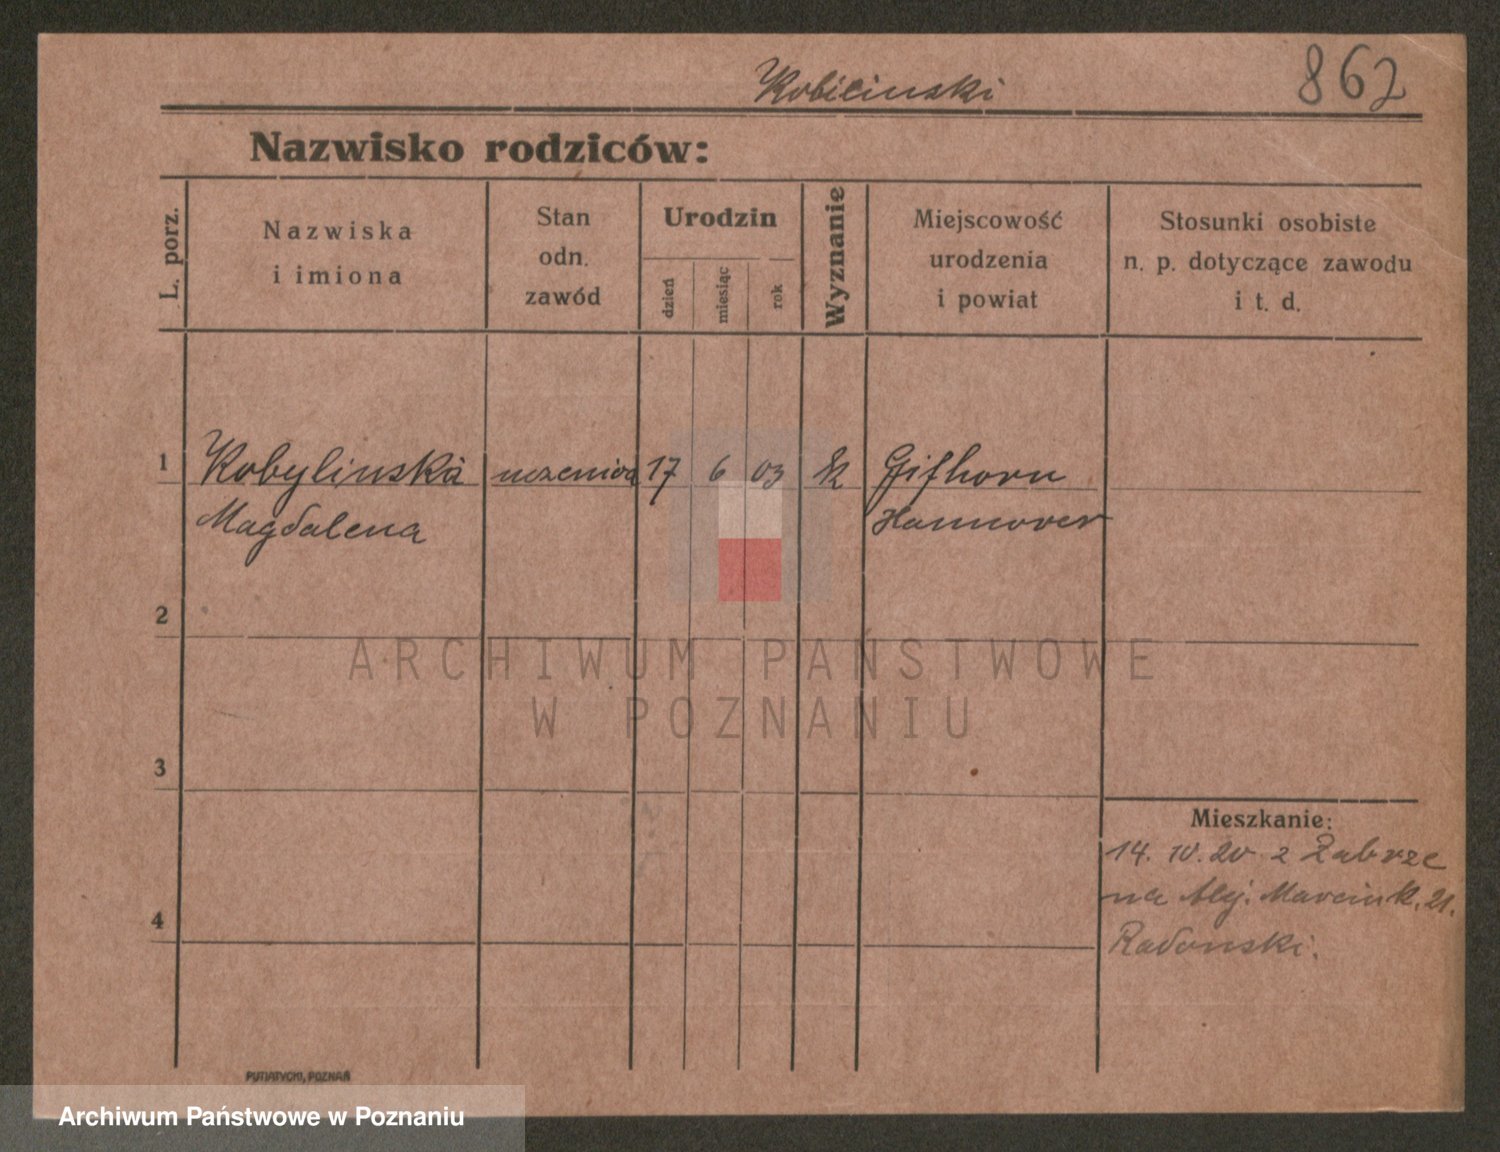 Kobilinski
862
Nazwisko rodziców:
L. porz.
Nazwiska
i imiona
Stan
odn.
zawód
Urodzin
dzień
miesiąc
rok
Wyznanie
Miejscowość
urodzenia
i powiat
Stosunki osobiste
n. p. dotyczące zawodu
i t. d.
1
Kobylinska
uczenica
17
6
03
k
Gifhorn
Magdalena
Hannover
2
ARCHIWUM PAŃSTWOWE
W POZNANIU
3
Mieszkanie:
14. IV. 20 z Zabrze
na Alej. Marcink. 21.
4
Radonski.
PUTIATYCKI, POZNAŃ
Archiwum Państwowe w Poznaniu